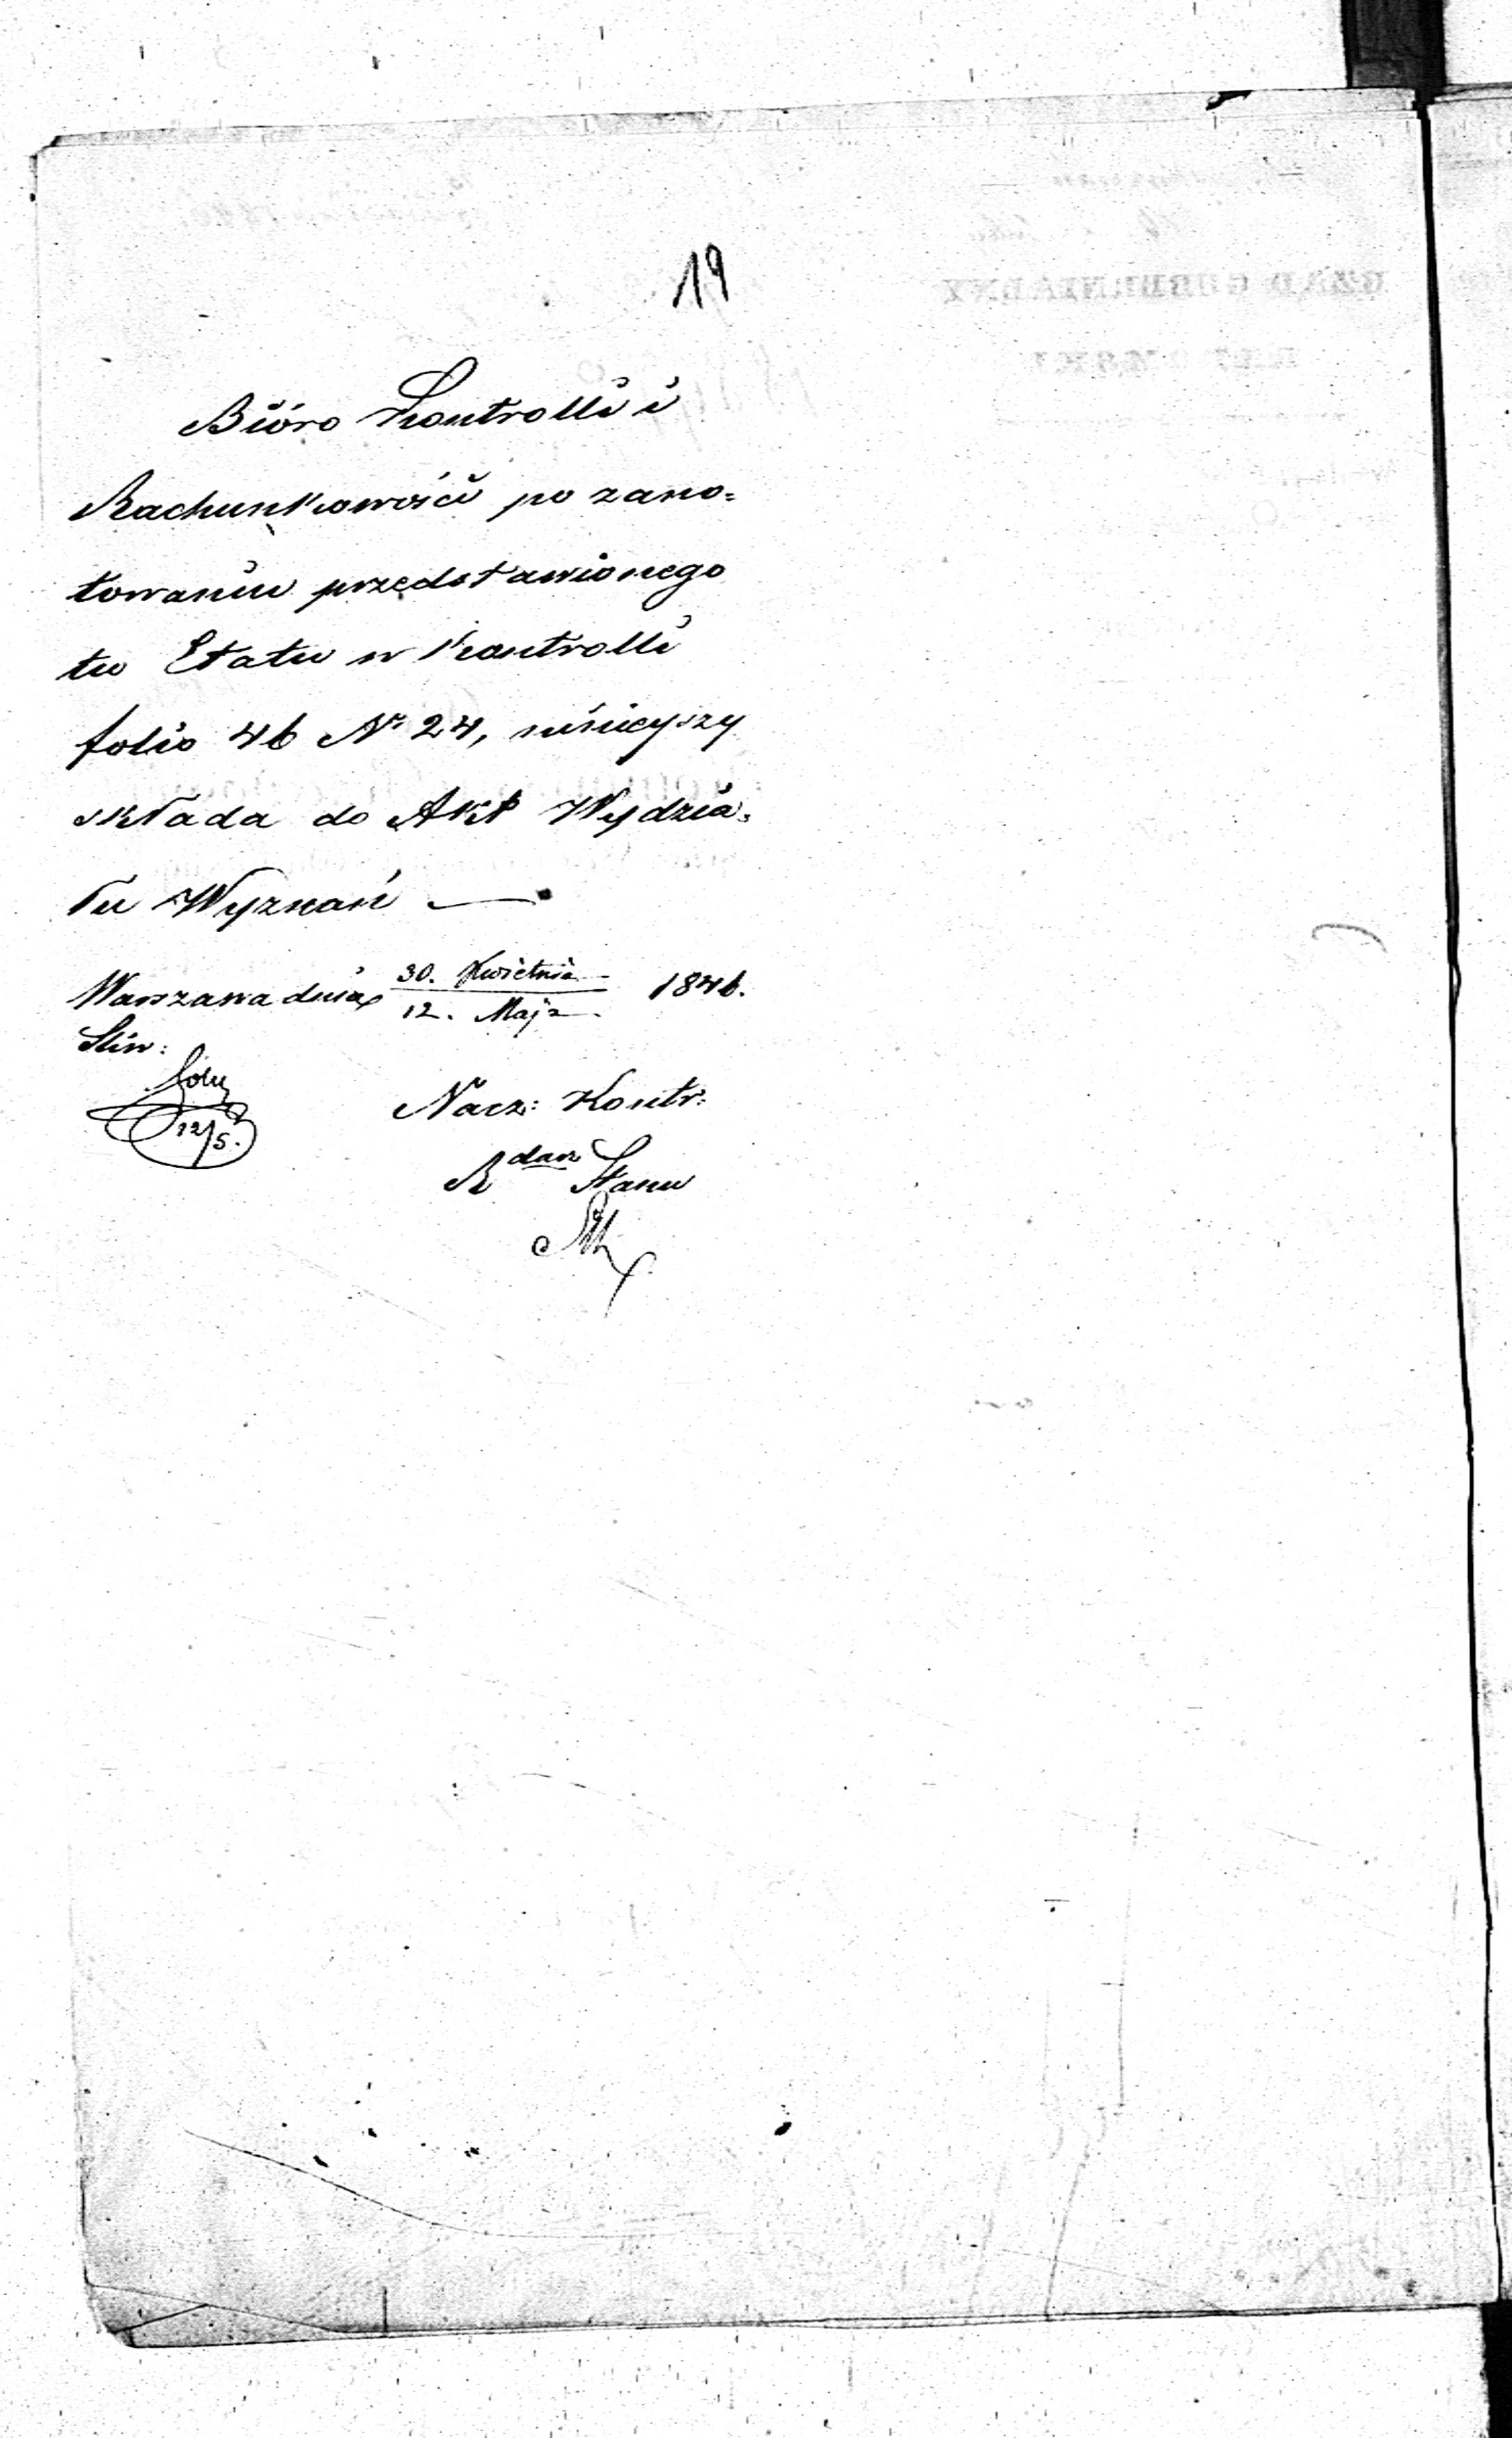 19
Bióro Kontrolli i
Rachunkowości po zano=
towaniu przedstawionego
tu Etatu w Kontrolli
folio 46 Nr 24, niniejszy
składa do Akt Wydzia=
łu Wyznań —
Warszawa dnia 30. Kwietnia / 12. Maja 1846.
Sliw:
12/5.
Nacz: Kontr:
Rdca Stanu